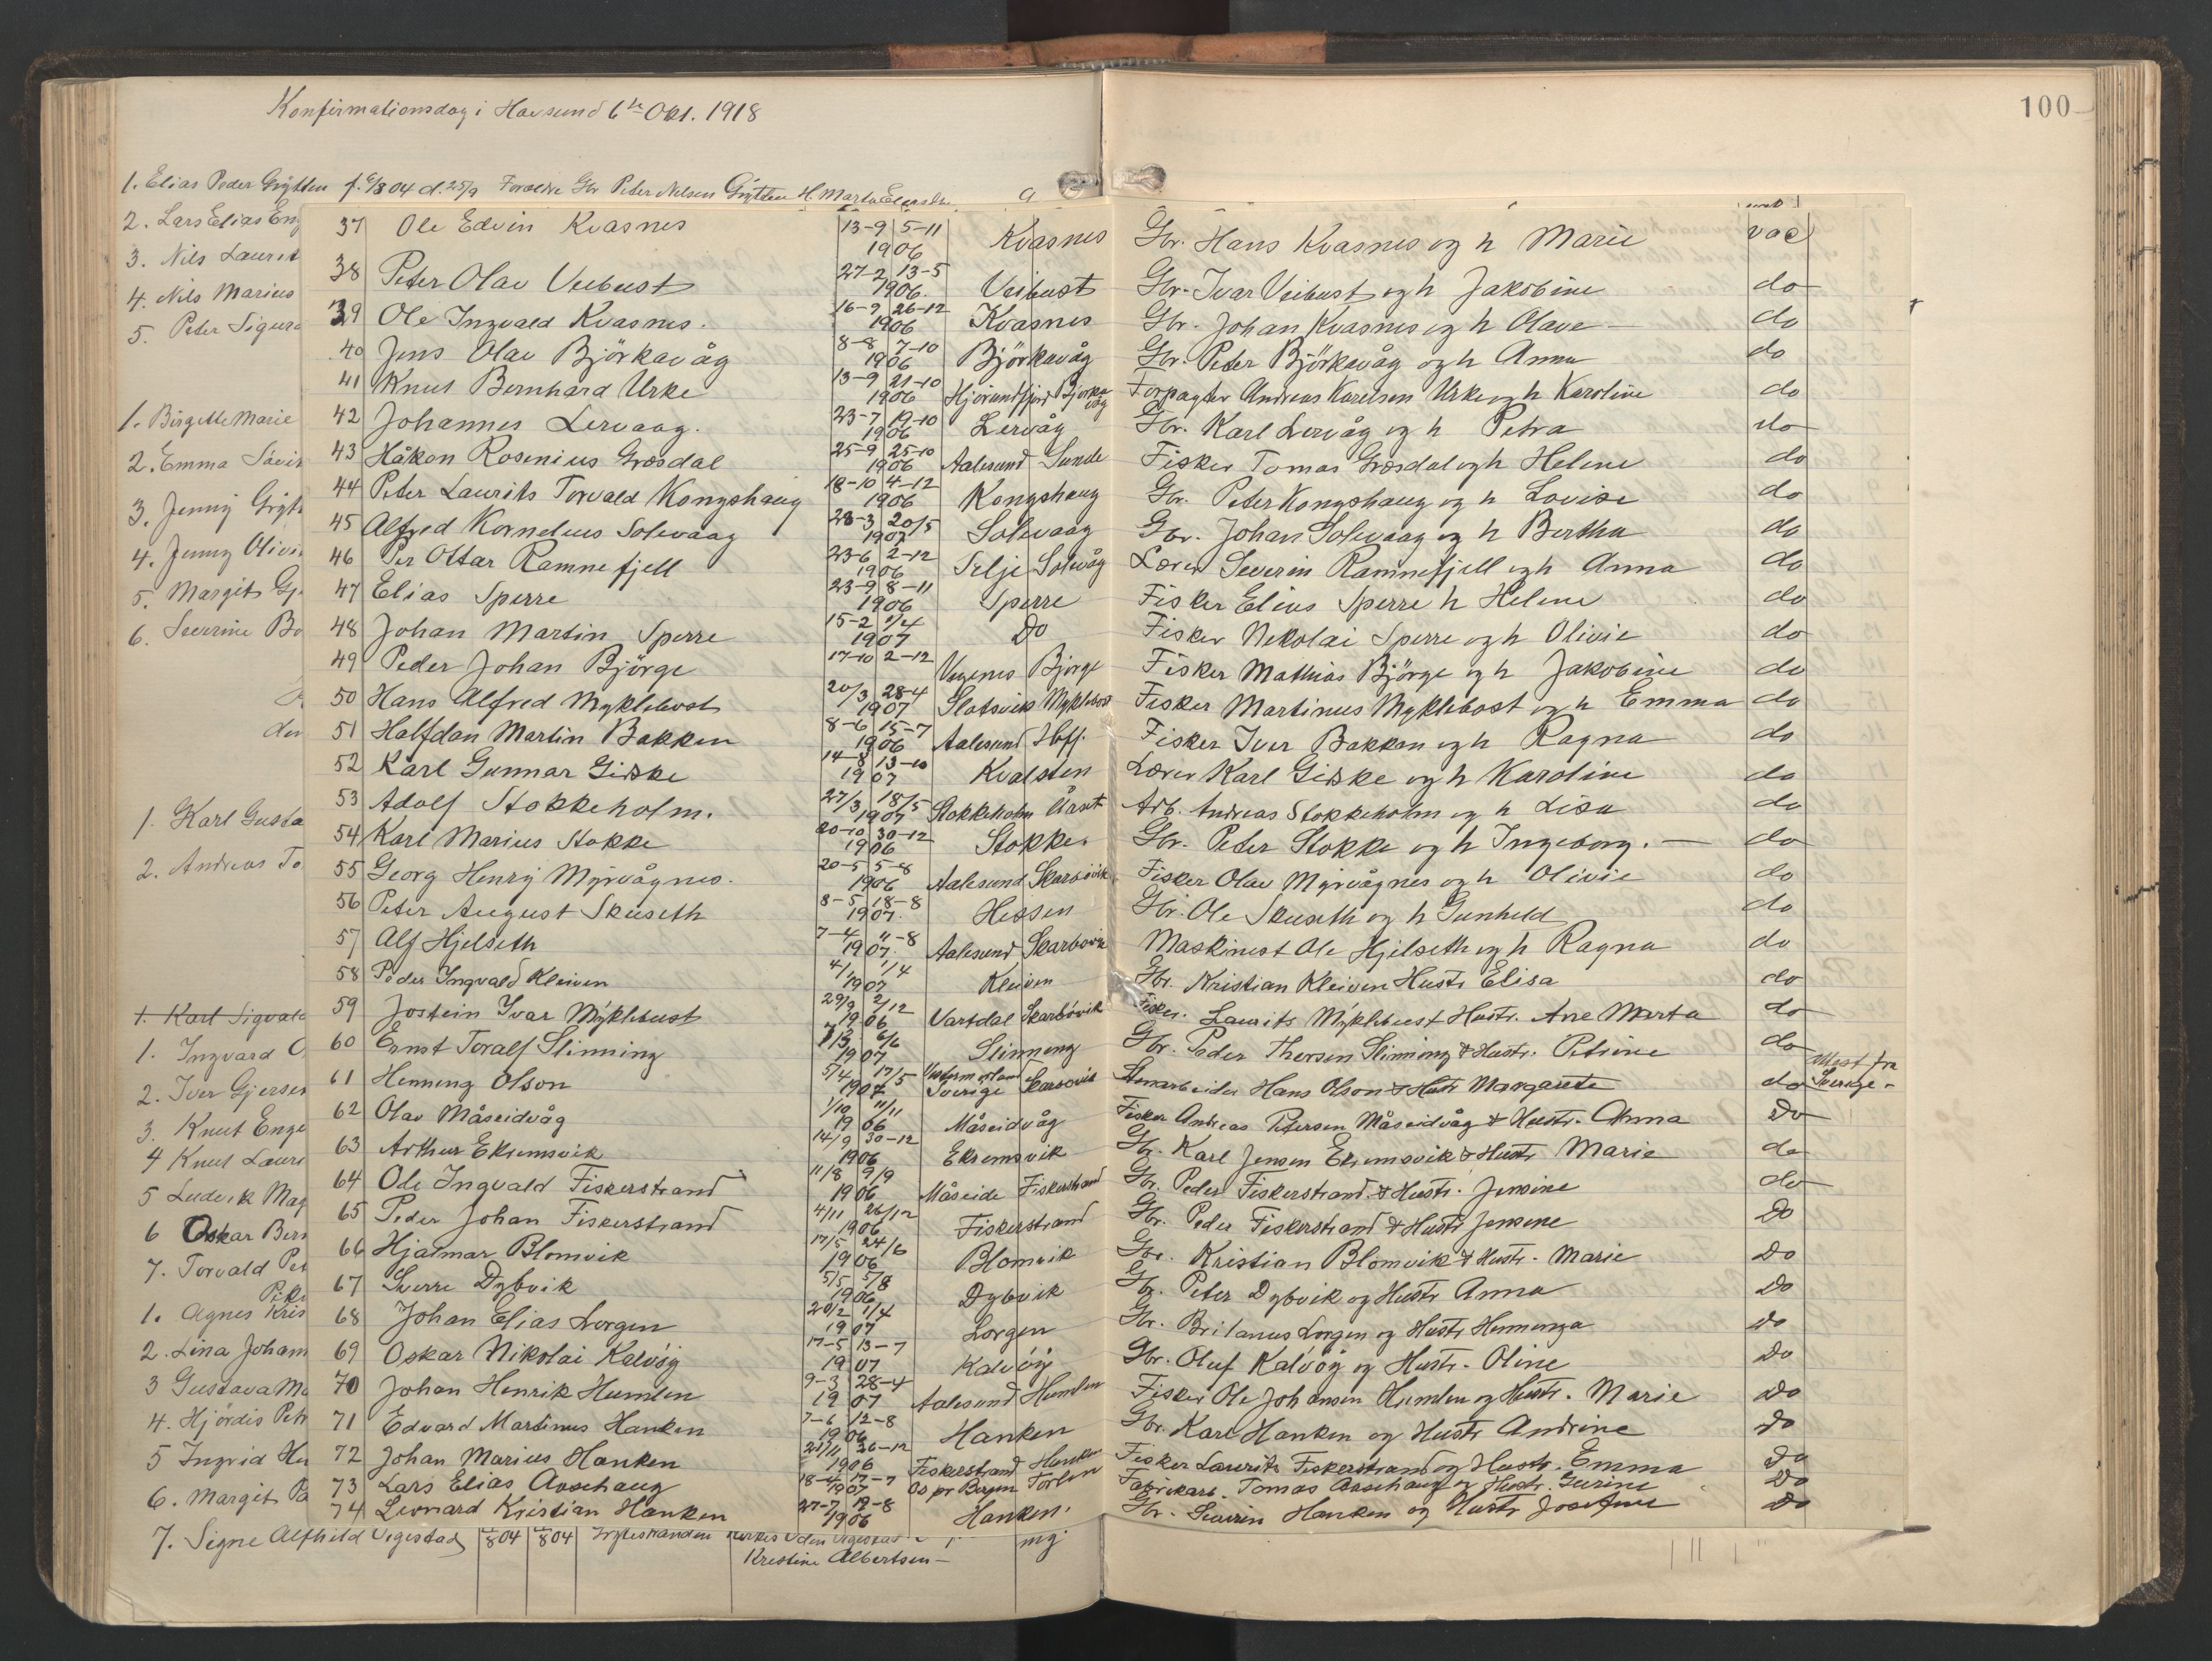 Konfirmationsdag i Havsund 6te Okt. 1918
100
1. Elias Peder Grytten f. 6/8 04 d. 25/9 Forældre Gbr Peter Nilsen Grytten H Marta
2. Lars Elias
3. Nils Laurit
4. Nils Marius
5. Peter Sigur
1. Birgitte Marie
2. Emma
3. Jenny Gryt
4. Jenny Olivi
5. Margit
6. Severine Bo
1. Karl Gusta
2. Andreas To
1. Karl Sigvald
1. Ingvard
2. Iver Gjerser
3. Knut Enge
4 Knut Lauri
5 Ludvik Mag
6 Oskar Bern
7. Torvald Pet
1. Agnes Kris
2. Lina Joham
3 Gustava Ma
4. Hjördis Petr
5 Ingrid
6. Margit Pa
37 Ole Edvin Kvasnes 13-9 5-11 1906 Kvasnes Gbr. Hans Kvasnes og h Marie vac
38 Peter Olav Veibust 27-2 13-5 1906. Veibust Gbr. Ivar Veibust og h Jakobine do
39 Ole Ingvald Kvasnes. 16-9 26-12 1906 Kvasnes Gbr. Johan Kvasnes og h Olave do
40 Jens Olav Björkavåg 8-8 7-10 1906 Björkavåg Gbr. Peter Björkavåg og h Anna do
41 Knut Bernhard Urke 13-9 21-10 1906 Hjörundfjord Bjorkavåg Forpagter Andreas Karelsen Urke og h Karoline do
42 Johannes Lervaag. 23-7 19-10 1906 Lervåg Gbr. Karl Lervåg og h Petra do
43 Håkon Rosenius Grosdal 25-9 25-10 1906 Aalesund Sunde Fisker Tomas Grosdal og h Helene do
44 Peter Laurits Torvald Kongshaug 18-10 4-12 1906 Kongshaug Gbr. Peter Kongshaug og h Lovise do
45 Alfred Kornelius Solevaag 28-3 20/5 1907 Solevaag Gbr. Johan Solevaag og h Bertha do
46 Per Ottar Ramnefjell 23-6 2-12 1906 Selje Solevåg Lærer Severin Ramnefjell og h Anna do
47 Elias Sperre 23-9 8-11 1906 Sperre Fisker Elias Sperre h Helene do
48 Johan Martin Sperre 15-2 1/4 1907 Do Fisker Nekolai Sperre og h Olivie do
49 Peder Johan Björge 17-10 2-12 Bjorge Fisker Mathias Björge og h Jakobine do
50 Hans Alfred Myklebost 20/3 28-4 1907 Slotsvik Myklebost Fisker Martinus Myklebost og h Emma do
51 Halfdan Martin Bakken 8-6 15-7 1906 Aalesund Hoff. Fisker Iver Bakken og h Ragna do
52 Karl Gunnar Giske 14-8 13-10 1907 Kvalsten Lærer Karl Giske og h Karoline do
53 Adolf Stokkeholm. 27/3 18/5 1907 Stokkeholm Årset Arb. Andreas Stokkeholm og h Lisa do
54 Karl Marius Stokke 20-10 30-12 1906 Stokke. Gbr. Peter Stokke og h Ingeborg. do
55 Georg Henry Myrvågnes. 20-5 5-8 1906 Aalesund Skarbövik Fisker Olav Myrvågnes og h Olivie do
56 Peter August Skuseth 8-5 18-8 1907. Hessen Gbr. Ole Skuseth og h Gunheld do
57 Alf Hjelseth 7-4 11-8 1907 Aalesund Skarbovik Maskinest Ole Hjelseth og h Ragna do
58 Peder Ingvald Kleiven 4/1 1/4 1907 Kleiven Gbr. Kristian Kleiven Hustr Elisa do
59 Jostein Ivar Myklebust 29/9 2/12 1906 Vartdal Skarbövik Fisker. Laurits Myklebust Hustr. Ane Marta do
60 Ernst Toralf Slinning 7/3 6/6 1907 Slinneng Gbr. Peder Thorsen Slinning & Hustr. Petrine do
61 Henneng Olson 5/4 17/5 1907 Sverige Skarbovik Stenarbeider Hans Olson & Hustr Margarete do Attest fra Sverige
62 Olav Måseidvåg 1/10 11/11 1906 Måseidvåg Fisker Andreas Petersen Måseidvåg & Hustr. Anna Do
63 Arthur Ekremsvik 14/9 30-12 1906 Ekremsvik Gbr. Karl Jensen Ekremsvik & Hustr Marie do
64 Ole Ingvald Fiskerstrand 11/8 9/9 1906 Måseide Fiskerstrand Gbr. Peder Fiskerstrand & Hustr. Jensine do
65 Peder Johan Fiskerstrand 4/11 26/12 1906 Fiskerstrand Gbr. Peder Fiskerstrand & Hustr Jensine Do
66 Hjalmar Blomvik 17/5 24/6 1906 Blomvik Gbr. Kristian Blomvik & Hustr. Marie Do
67 Sverre Dybvik 5/5 5/8 1906 Dybvik Gbr. Peter Dybvik og Hustr Anna Do
68 Johan Elias Lorgen 20/2 1/4 1907 Lorgen Gbr. Britanus Lorgen og Hustr Do
69 Oskar Nikolai Kalvöy 17-5 13-7 1907 Kalvöy Gbr. Oluf Kalvöy og Hustr. Oline Do
70 Johan Henrik Humlen 9-3 28-4 1907 Aalesund Humlen Fisker Ole Johansen Humlen og Hustr. Marie Do
71 Edvard Martinus Hanken 7-6 12-8 1906 Hanken Gbr. Karl Hanken og Hustr Andrine Do
72 Johan Marius Hanken 21/11 26-12 1906 Fiskerstrand Hanken Fisker Laurits Fiskerstrand og Hustr. Emma Do
73 Lars Elias Aoschaug 18-4 17-7 1907 Os pr Bergen Torlen Fabrikarb. Tomas Aaschaug og Hustr. Gurine Do
74 Leonard Kristian Hanken 27-7 12-8 1906 Hanken. Gbr. Severin Hanken og Hustr Josefine Do
7. Signe Alfhild Vigestad 804 804 Grytestranden
Kristine Albertsen
mg